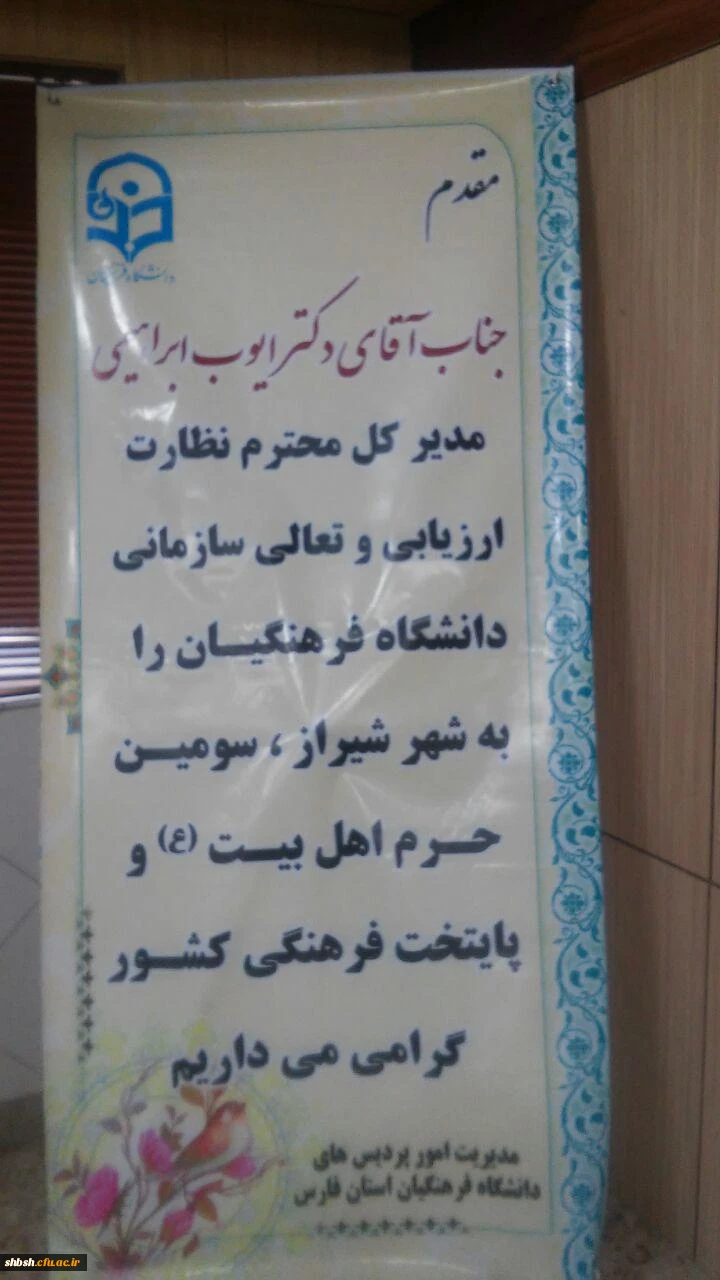 مقدم
دانشگاه فرهنگیان
جناب آقای دکتر ایوب ابراهیمی
مدیر کل محترم نظارت
ارزیابی و تعالی سازمانی
دانشگاه فرهنگیــان را
به شهر شیراز ، سومیــن
حــرم اهل بیــت (ع) و
پایتخت فرهنگی کشــور
گرامی می داریم
مدیریت امور پردیس های
دانشگاه فرهنگیان استان فارس
shbsh.cfu.ac.ir